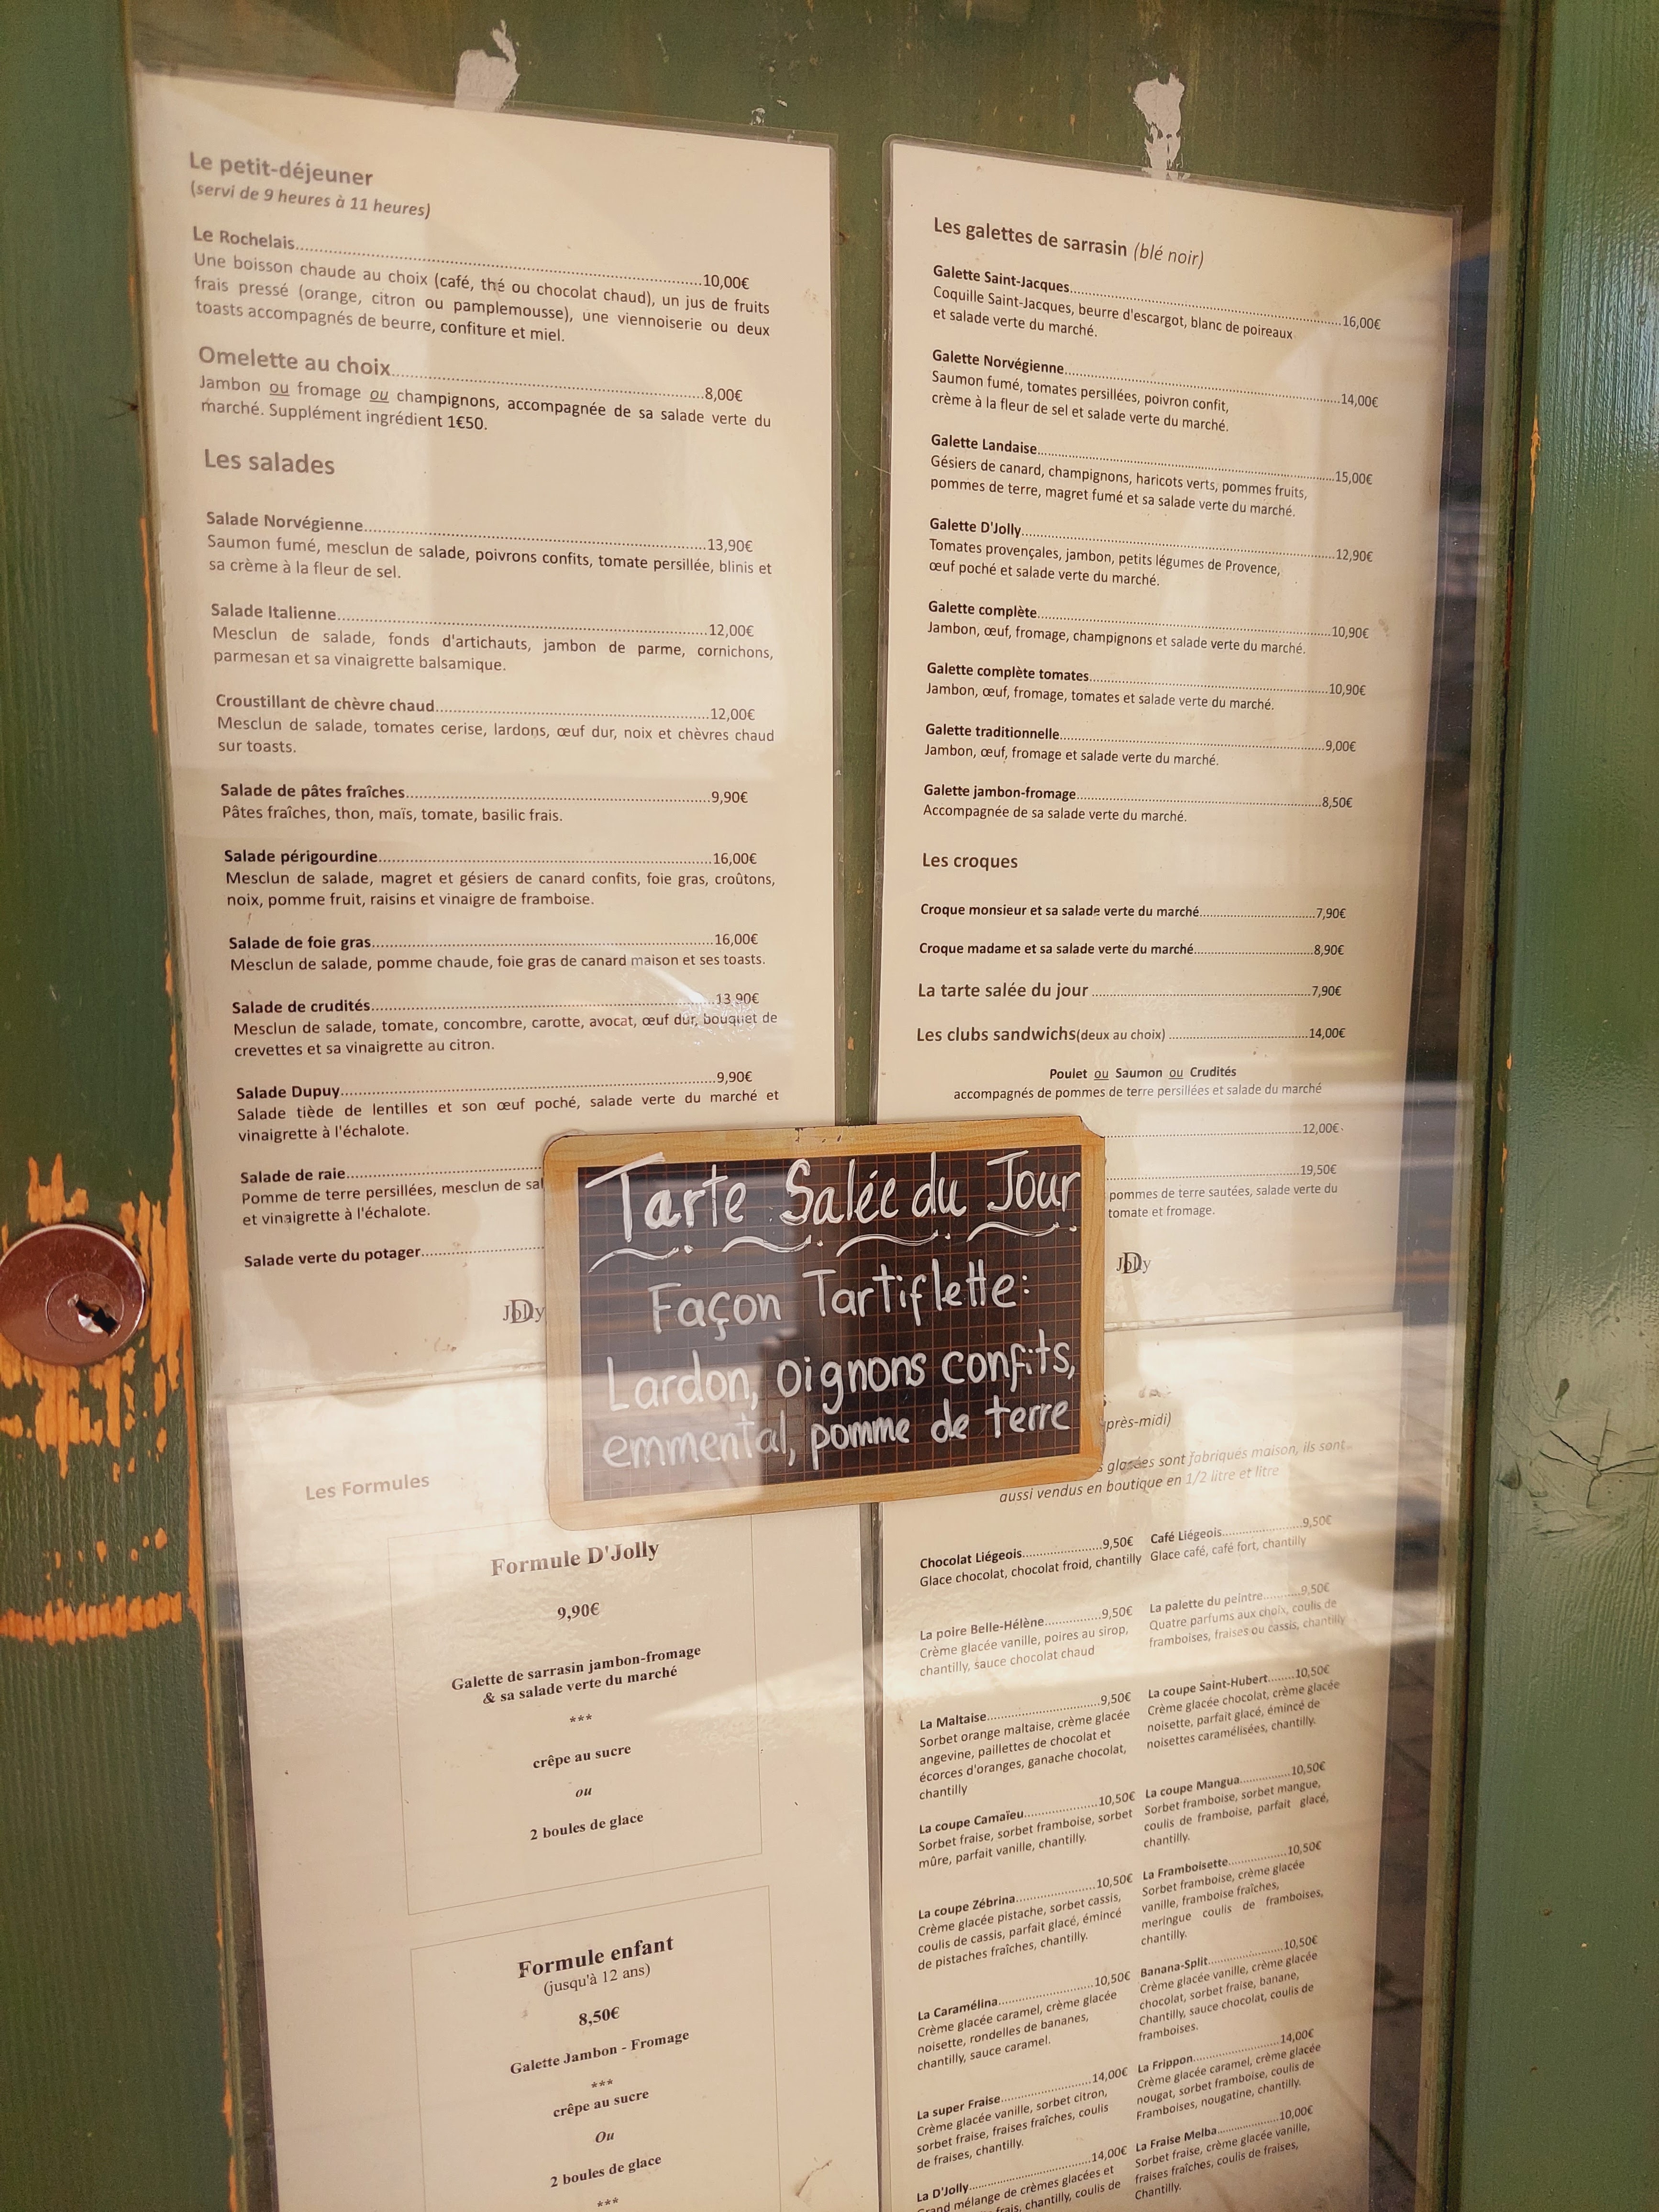 Le petit-déjeuner
(servi de 9 heures à 11 heures)
Le Rochelais.....10,00€
Une boisson chaude au choix (café, thé ou chocolat chaud), un jus de fruits
frais pressé (orange, citron ou pamplemousse), une viennoiserie ou deux
toasts accompagnés de beurre, confiture et miel.
Omelette au choix.....8,00€
Jambon ou fromage ou champignons, accompagnée de sa salade verte du
marché. Supplément ingrédient 1€50.
Les salades
Salade Norvégienne.....13,90€
Saumon fumé, mesclun de salade, poivrons confits, tomate persillée, blinis et
sa crème à la fleur de sel.
Salade Italienne.....12,00€
Mesclun de salade, fonds d'artichauts, jambon de parme, cornichons,
parmesan et sa vinaigrette balsamique.
Croustillant de chèvre chaud.....12,00€
Mesclun de salade, tomates cerise, lardons, œuf dur, noix et chèvres chaud
sur toasts.
Salade de pâtes fraîches.....9,90€
Pâtes fraîches, thon, maïs, tomate, basilic frais.
Salade périgourdine.....16,00€
Mesclun de salade, magret et gésiers de canard confits, foie gras, croûtons,
noix, pomme fruit, raisins et vinaigre de framboise.
Salade de foie gras.....16,00€
Mesclun de salade, pomme chaude, foie gras de canard maison et ses toasts.
Salade de crudités.....13,90€
Mesclun de salade, tomate, concombre, carotte, avocat, œuf dur, bouquet de
crevettes et sa vinaigrette au citron.
Salade Dupuy.....9,90€
Salade tiède de lentilles et son œuf poché, salade verte du marché et
vinaigrette à l'échalote.
Salade de raie.....
Pomme de terre persillées, mesclun de sal
et vinaigrette à l'échalote.
Salade verte du potager.....
D
Jolly
Les galettes de sarrasin (blé noir)
Galette Saint-Jacques.....16,00€
Coquille Saint-Jacques, beurre d'escargot, blanc de poireaux
et salade verte du marché.
Galette Norvégienne.....14,00€
Saumon fumé, tomates persillées, poivron confit,
crème à la fleur de sel et salade verte du marché.
Galette Landaise.....15,00€
Gésiers de canard, champignons, haricots verts, pommes fruits,
pommes de terre, magret fumé et sa salade verte du marché.
Galette D'Jolly.....12,90€
Tomates provençales, jambon, petits légumes de Provence,
œuf poché et salade verte du marché.
Galette complète.....10,90€
Jambon, œuf, fromage, champignons et salade verte du marché.
Galette complète tomates.....10,90€
Jambon, œuf, fromage, tomates et salade verte du marché.
Galette traditionnelle.....9,00€
Jambon, œuf, fromage et salade verte du marché.
Galette jambon-fromage.....8,50€
Accompagnée de sa salade verte du marché.
Les croques
Croque monsieur et sa salade verte du marché.....7,90€
Croque madame et sa salade verte du marché.....8,90€
La tarte salée du jour.....7,90€
Les clubs sandwichs(deux au choix).....14,00€
Poulet ou Saumon ou Crudités
accompagnés de pommes de terre persillées et salade du marché
.....12,00€
.....19,50€
pommes de terre sautées, salade verte du
tomate et fromage.
D
Jolly
Tarte Salée du Jour
Façon Tartiflette:
Lardon, oignons confits,
emmental, pomme de terre
Les Formules
Formule D'Jolly
9,90€
Galette de sarrasin jambon-fromage
& sa salade verte du marché
***
crêpe au sucre
ou
2 boules de glace
Formule enfant
(jusqu'à 12 ans)
8,50€
Galette Jambon - Fromage
***
crêpe au sucre
Ou
2 boules de glace
***
près-midi)
glacées sont fabriqués maison, ils sont
aussi vendus en boutique en 1/2 litre et litre
Chocolat Liégeois.....9,50€
Glace chocolat, chocolat froid, chantilly
La poire Belle-Hélène.....9,50€
Crème glacée vanille, poires au sirop,
chantilly, sauce chocolat chaud
La Maltaise.....9,50€
Sorbet orange maltaise, crème glacée
angevine, paillettes de chocolat et
écorces d'oranges, ganache chocolat,
chantilly
La coupe Camaïeu.....10,50€
Sorbet fraise, sorbet framboise, sorbet
mûre, parfait vanille, chantilly.
La coupe Zébrina.....10,50€
Crème glacée pistache, sorbet cassis,
coulis de cassis, parfait glacé, émincé
de pistaches fraîches, chantilly.
La Caramélina.....10,50€
Crème glacée caramel, crème glacée
noisette, rondelles de bananes,
chantilly, sauce caramel.
La super Fraise.....14,00€
Crème glacée vanille, sorbet citron,
sorbet fraise, fraises fraîches, coulis
de fraises, chantilly.
La D'Jolly.....14,00€
Grand mélange de crèmes glacées et
frais, chantilly, coulis de
Café Liégeois.....9,50€
Glace café, café fort, chantilly
La palette du peintre.....9,50€
Quatre parfums aux choix, coulis de
framboises, fraises ou cassis, chantilly
La coupe Saint-Hubert.....10,50€
Crème glacée chocolat, crème glacée
noisette, parfait glacé, émincé de
noisettes caramélisées, chantilly.
La coupe Mangua.....10,50€
Sorbet framboise, sorbet mangue,
coulis de framboise, parfait glacé,
chantilly.
La Framboisette.....10,50€
Sorbet framboise, crème glacée
vanille, framboise fraîches,
meringue coulis de framboises,
chantilly.
Banana-Split.....10,50€
Crème glacée vanille, crème glacée
chocolat, sorbet fraise, banane,
Chantilly, sauce chocolat, coulis de
framboises.
La Frippon.....14,00€
Crème glacée caramel, crème glacée
nougat, sorbet framboise, coulis de
Framboises, nougatine, chantilly.
La Fraise Melba.....10,00€
Sorbet fraise, crème glacée vanille,
fraises fraîches, coulis de fraises,
Chantilly.